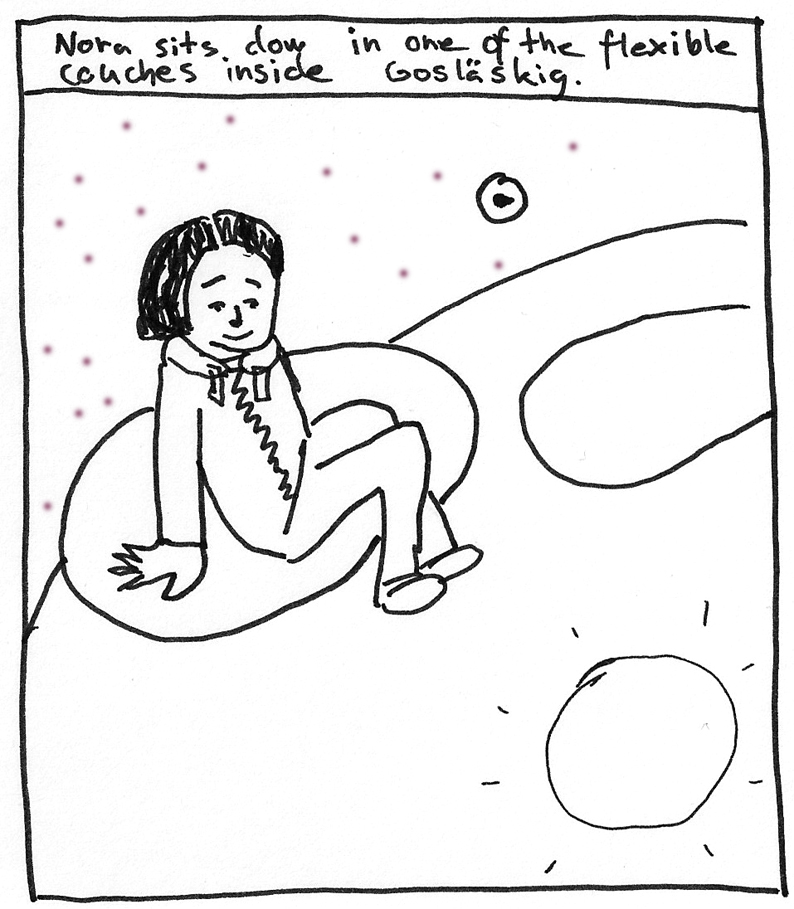 Nora sits dow in one of the flexible
couches inside Gosläskig.